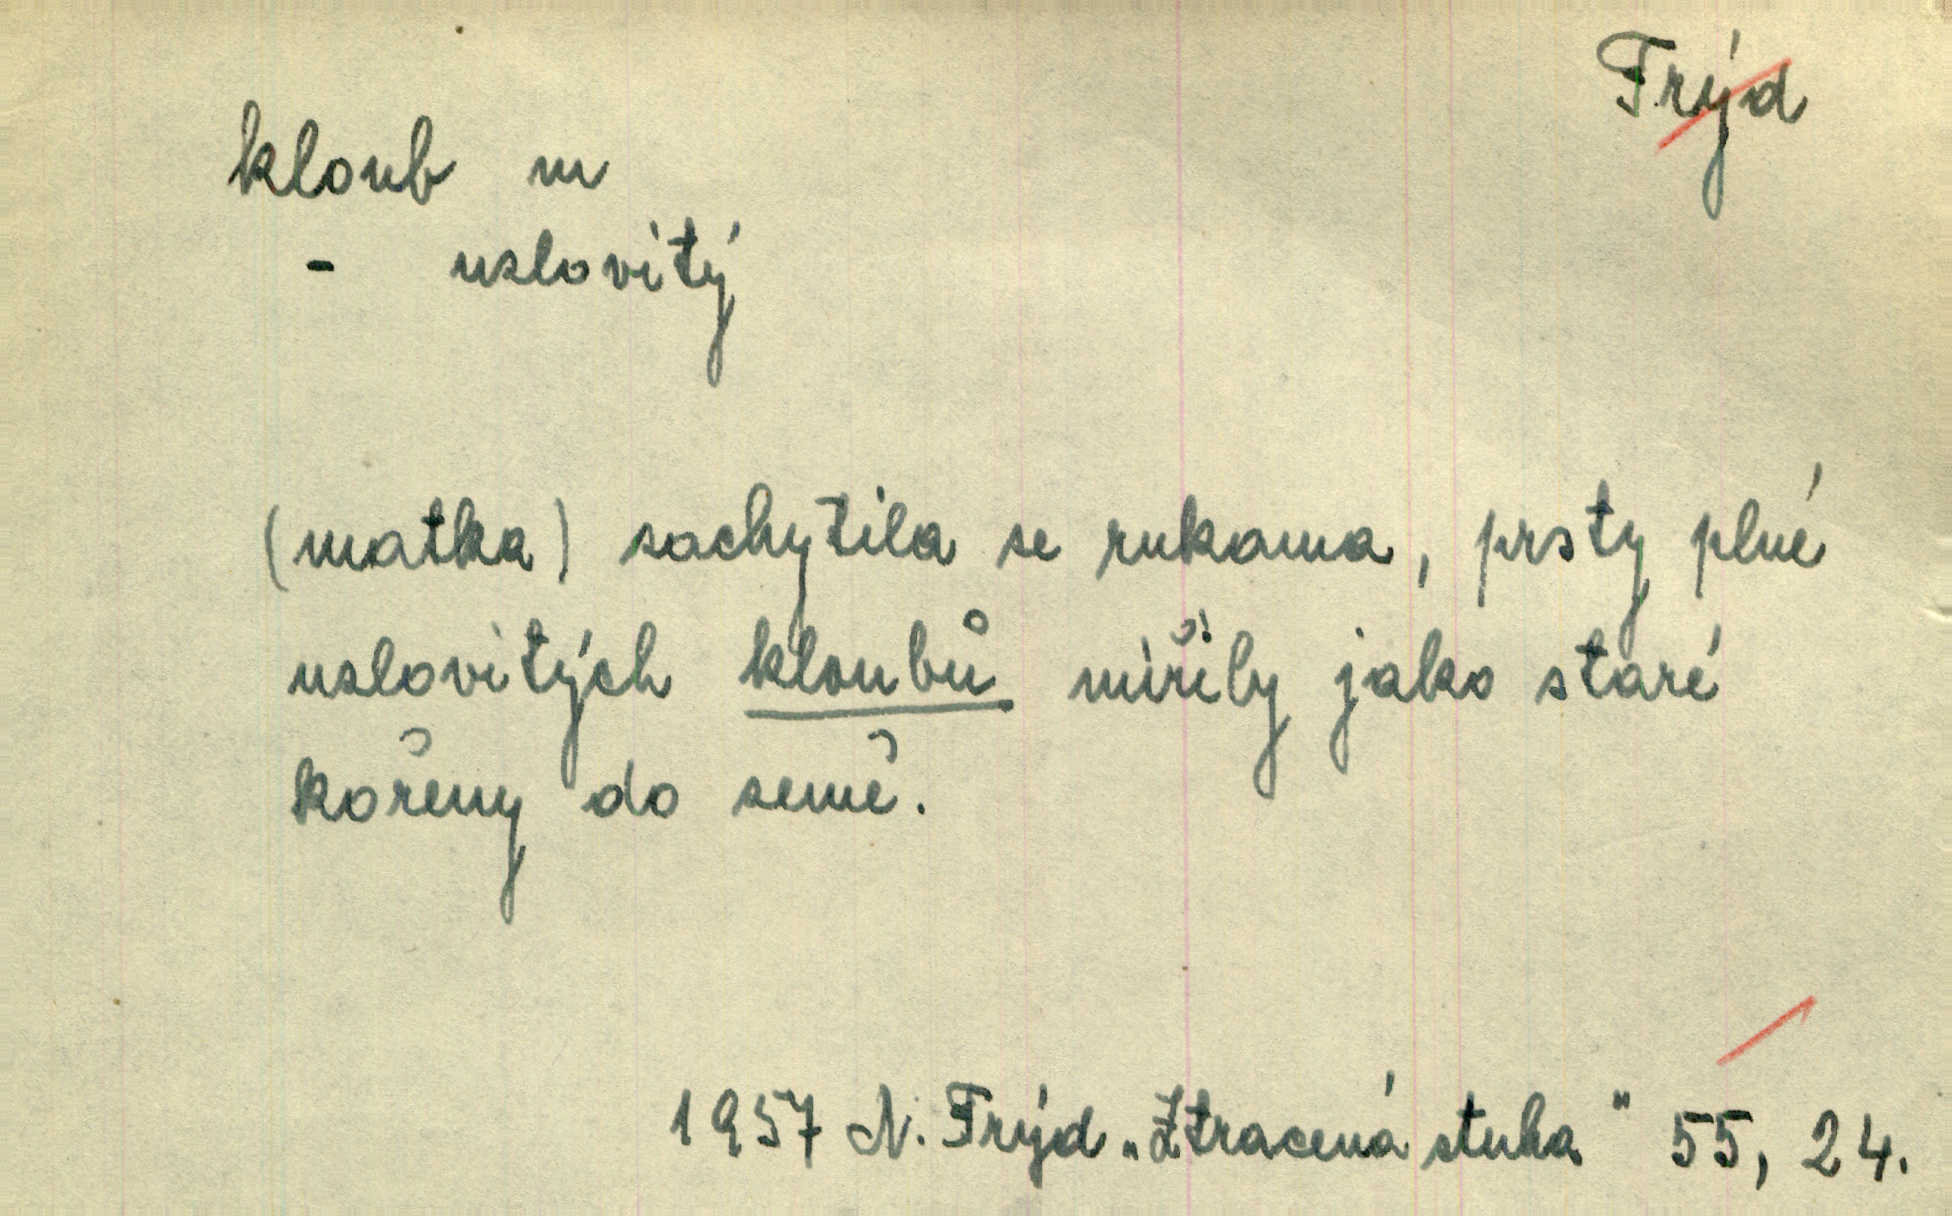 Frýd
kloub m
- uzlovitý
(matka) zachytila se rukama, prsty plné
uzlovitých kloubů mířily jako staré
kořeny do země.
1957 N. Frýd „Ztracená stuha" 55, 24.